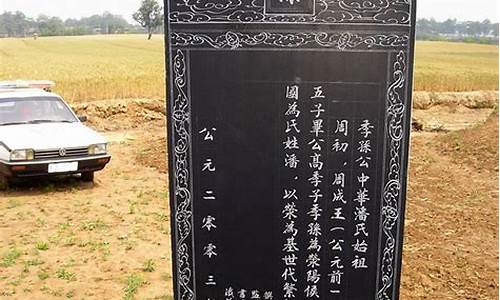 季孫公中華潘氏始祖
周初,周成王(公元前一
五子畢公高季子季孫為滎陽侯
國為氏姓潘,以滎為基世代繁
公元二零零三
撰
監書